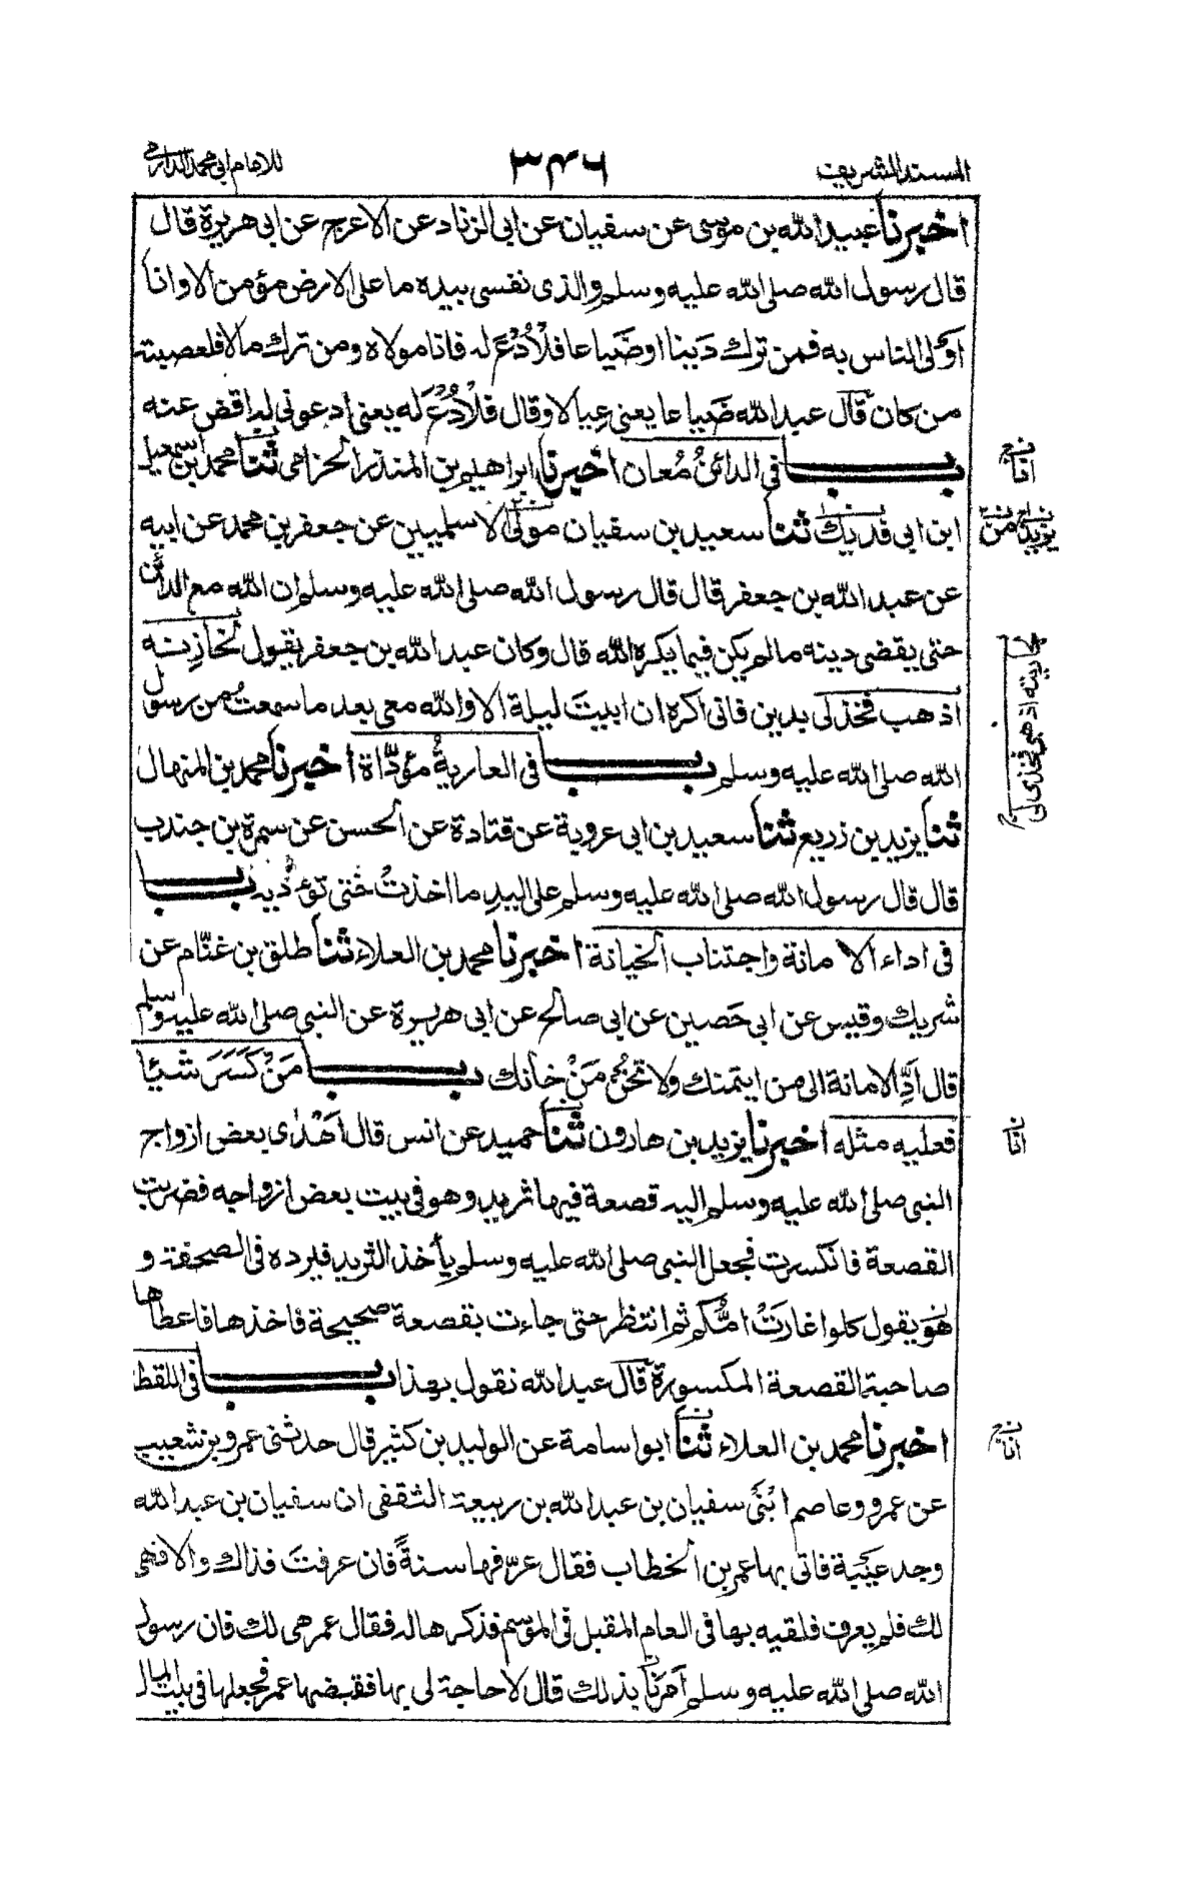 المسند الشريف
٣٤٦
للامام ابى محمد الدارمى
اخبرنا عبيد الله بن موسى عن سفيان عن ابى الزناد عن الاعرج عن ابى هريرة قال
قال رسول الله صلى الله عليه وسلم والذى نفسى بيده ما على الارض مؤمن الا وانا
اولى الناس به فمن ترك دَينا او ضَياعا فلأُدْعَ له فانا مولاه ومن ترك مالا فلعصبته
من كان قال عبد الله ضَياعا يعنى عِيالا وقال فلأُدْعَ له يعنى ادعونى له اقض عنه
باب فى الدائنُ مُعان اخبرنا ابراهيم بن المنذر الحزامى ثنا محمد بن اسمعيل
نسخ
انا
ابن ابى فديك ثنا سعيد بن سفيان مولى الاسلميين عن جعفر بن محمد عن ابيه
عن عبد الله بن جعفر قال قال رسول الله صلى الله عليه وسلم ان الله مع الدائن
حتى يقضى دينه ما لم يكن فيما يكره الله قال وكان عبد الله بن جعفر يقول لخازنه
اذهب فخذ لى بدين فانى اكره ان ابيتَ ليلة الا والله معى بعد ما سمعتُ من رسول
الله صلى الله عليه وسلم باب فى العاريةُ مؤدّاة اخبرنا محمد بن المنهال
ثنا يزيد بن زريع ثنا سعيد بن ابى عروبة عن قتادة عن الحسن عن سمرة بن جندب
قال قال رسول الله صلى الله عليه وسلم على اليدِ ما اخذتْ حتى تؤديه باب
فى اداء الامانة واجتناب الخيانة اخبرنا محمد بن العلاء ثنا طلق بن غنّام عن
شريك وقيس عن ابى حَصين عن ابى صالح عن ابى هريرة عن النبى صلى الله عليه وسلم
قال اَدِّ الامانة الى من ايتمنك ولا تخن مَنْ خانك باب مَنْ كَسَرَ شيئا
فعليه مثله اخبرنا يزيد بن هارون ثنا حميد عن انس قال اَهْدى بعض ازواج
انا
النبى صلى الله عليه وسلم اليه قصعة فيها ثريد وهو فى بيت بعض ازواجه فضربت
القصعة فانكسرت فجعل النبى صلى الله عليه وسلم يأخذ الثريد فيرده فى الصحفة و
هو يقول كلوا غارَتْ امُّكم ثم انتظر حتى جاءت بقصعة صحيحة فاخذها فاعطاها
صاحبة القصعة المكسورة قال عبد الله نقول بهذا باب فى اللقطة
اخبرنا محمد بن العلاء ثنا ابو اسامة عن الوليد بن كثير قال حدثنى عمرو بن شعيب
نسخ
انا
عن عمرو وعاصم ابْنَى سفيان بن عبد الله بن ربيعة الثقفى ان سفيان بن عبد الله
وجد عَيْبة فاتى بها عمر بن الخطاب فقال عرّفها سنةً فان عرفتَ فذاك والا فهى
لك فلم يعرف فلقيه بها فى العام المقبل فى الموسم فذكرها له فقال عمر هى لك فان رسول
الله صلى الله عليه وسلم اَمَرنا بذلك قال لا حاجة لى بها فقبضها عمر فجعلها فى بيت المال